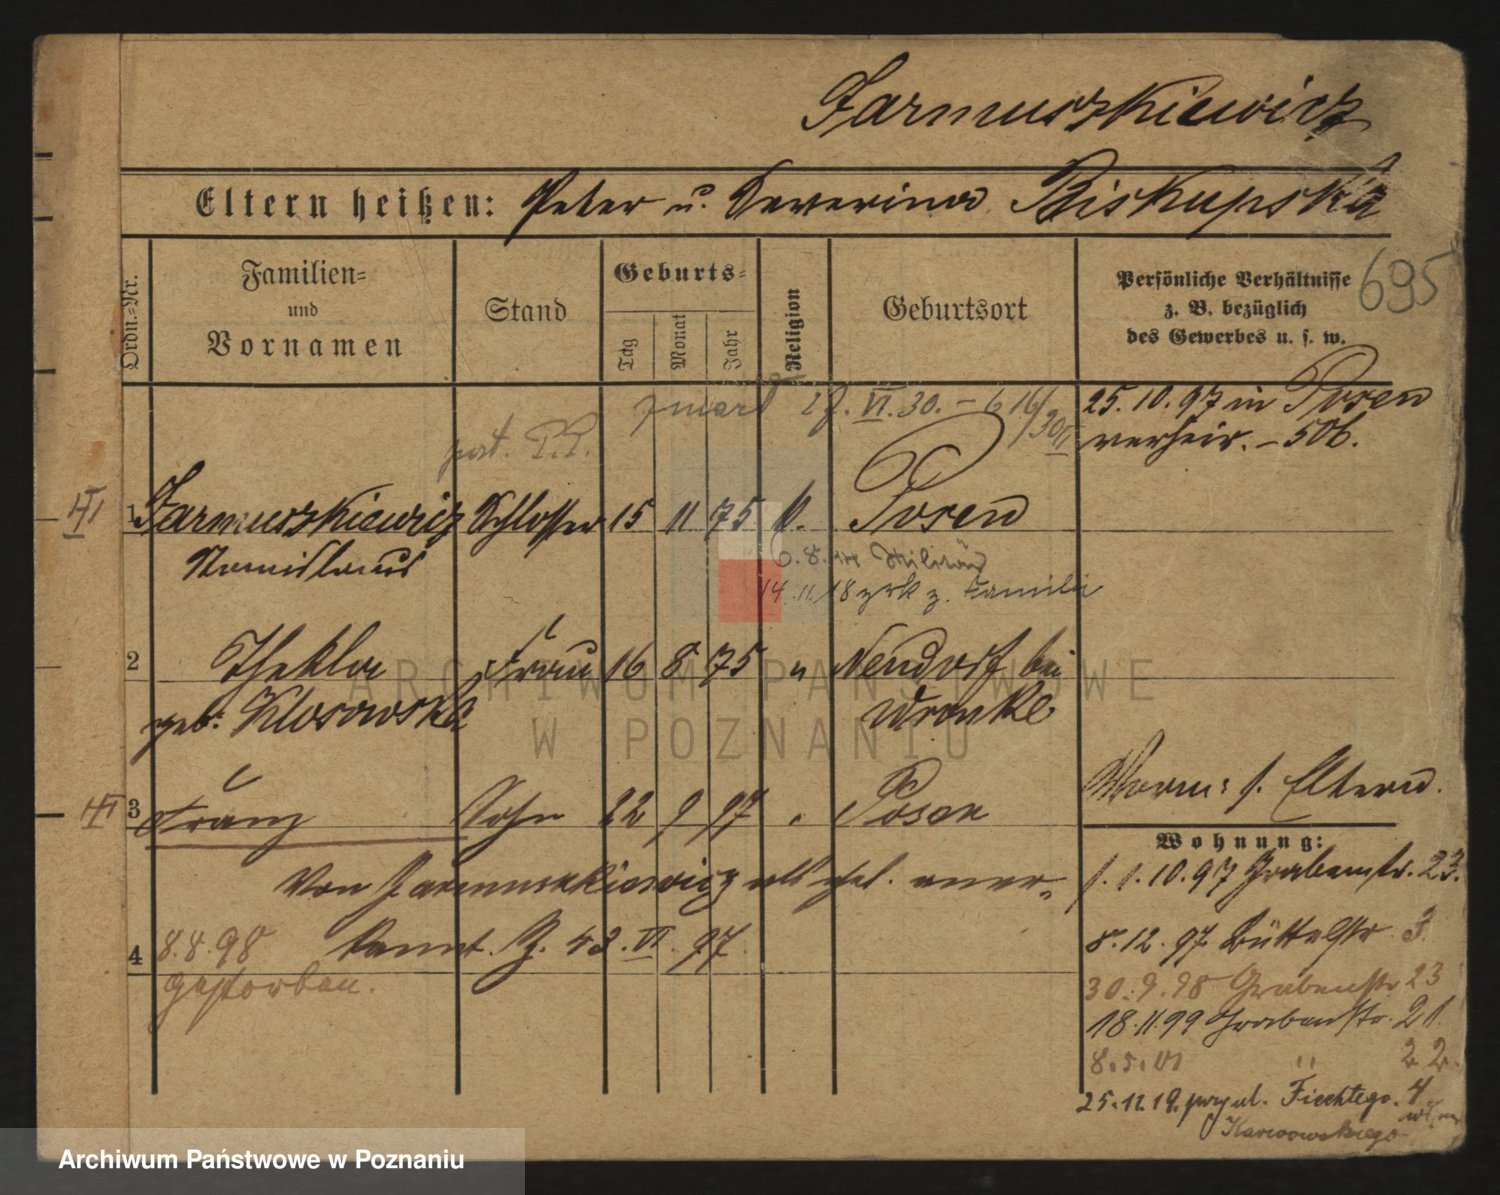 Jarmuszkiewicz
Eltern heißen: Peter u. Severina Biskupska
695
Ordn.-Nr.
Familien- und Vornamen
Stand
Geburts-
Tag Monat Jahr
Religion
Geburtsort
Persönliche Verhältnisse
z. B. bezüglich
des Gewerbes u. s. w.
zmarł 27. VI. 30. – 616/30
25. 10. 97 in Posen
verheir. – 506.
1 Jarmuszkiewicz Schlosser 15 11 75 k. Posen
Stanislaus
6. 8. Militär
14. 11. 18 z. Familii
2 Thekla Frau 16 8 75 " Neudorf bei
geb. Klosowska Wronke
3 Franz Sohn 22 9 97 " Posen
Vorm: s. Eltern.
Wohnung:
Von Jarmuszkiewicz als ehel. aner-
kannt. Z. 43. VI. 97
4 8. 8. 98
gestorben.
1. 10. 97 Grabenstr. 23.
8. 12. 97 Büttelstr. 3
30. 9. 98 Grabenstr 23
18. 11. 99 Grabenstr. 21
8. 5. 01 " 22.
25. 11. 19. Fiechtego. 4
Karwowskiego
ARCHIWUM PAŃSTWOWE
W POZNANIU
Archiwum Państwowe w Poznaniu